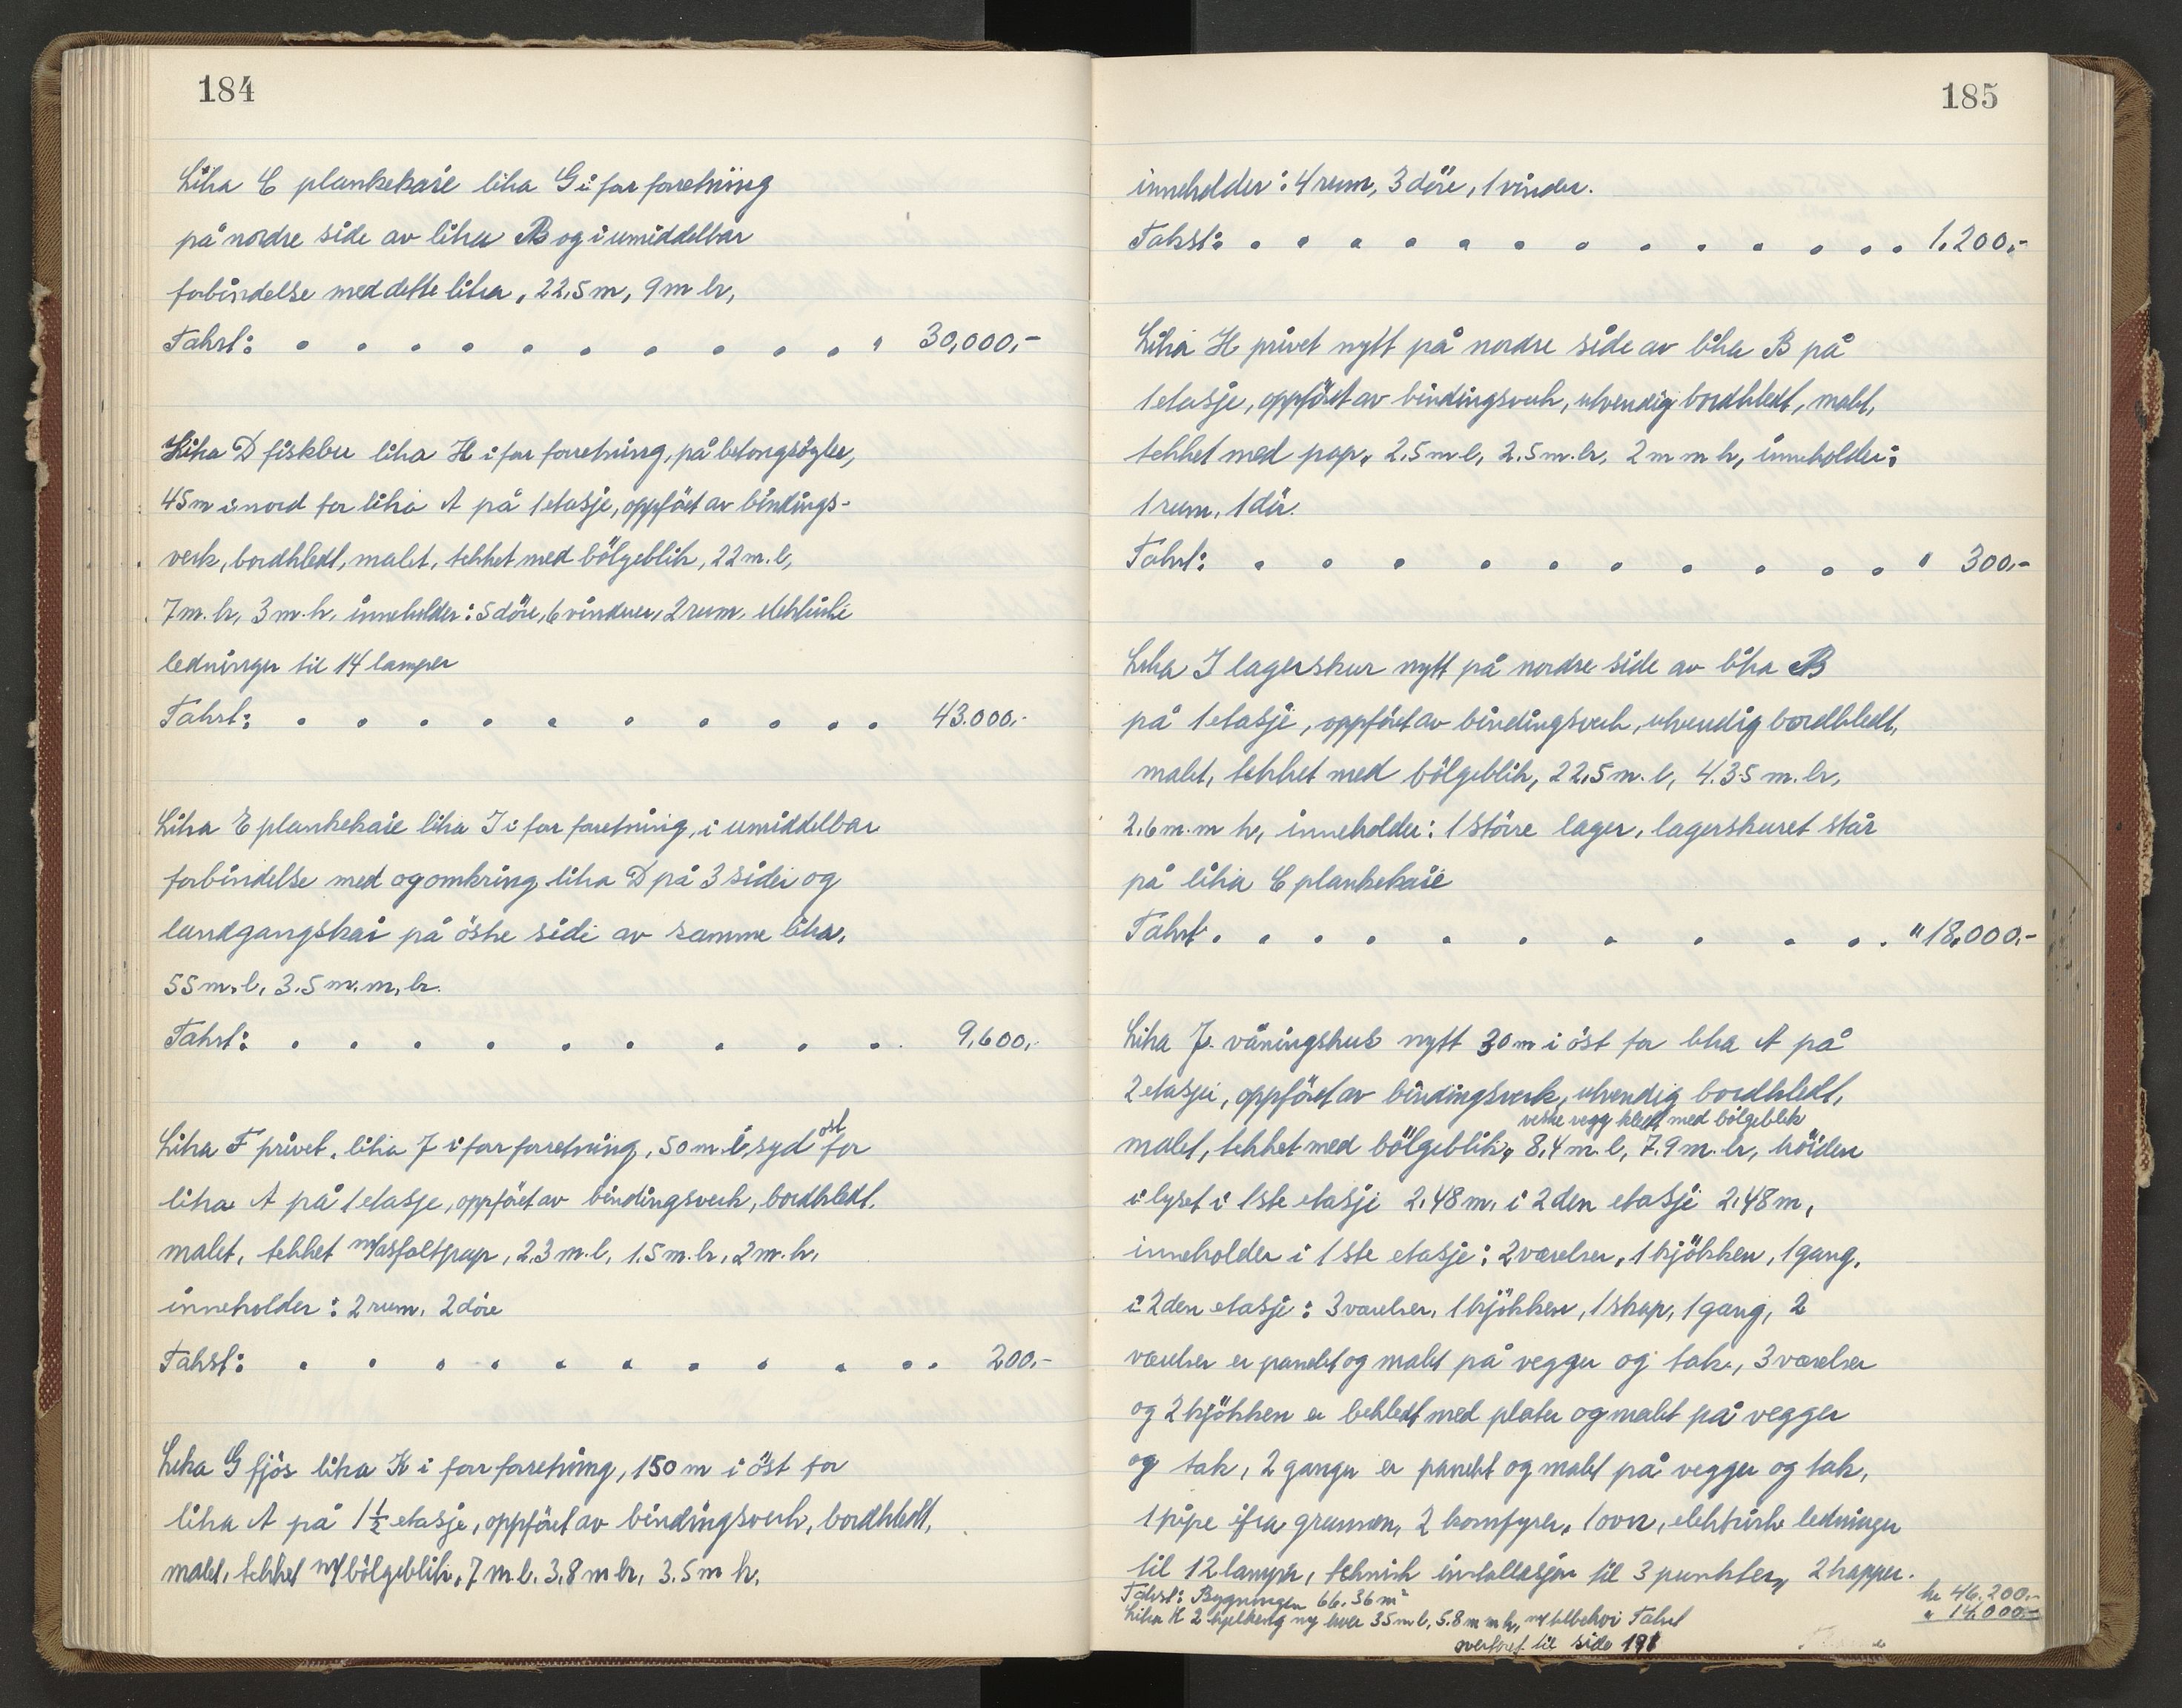 184
Litra C plankekaie litra G i før forretning
på nordre side av litra B og i umiddelbar
forbindelse med dette litra, 22,5 m, 9 m br,
Takst: . . . . . . . . . . . " 30,000,-
Litra D fiskbu litra H i før forretning, på betongsöyler,
45 m i nord for litra A på 1 etasje, oppföret av bindings-
verk, bordkledt, malet, tekket med bölgeblik, 22 m. l,
7 m. br, 3 m. h, inneholder: 5 döre, 6 vinduer, 2 rum, elektriske
ledninger til 14 lamper
Takst: . . . . . . . . . . . 43.000,-
Litra E plankekaie litra I i før foretning, i umiddelbar
forbindelse med og omkring litra D på 3 sider og
landgangskai på östre side av samme litra,
55 m. l, 3.5 m. m. br.
Takst: . . . . . . . . . . 9,600,-
Litra F privet, litra J i før forretning, 50 m. i syd öst for
litra A på 1 etasje, oppföret av bindingsverk, bordkledt,
malet, tekket m/asfaltpap, 2,3 m. l, 1,5 m. br, 2 m. h,
inneholder: 2 rum, 2 döre
Takst: . . . . . . . . . . . 200,-
Litra G fjös litra K i før forretning, 150 m i öst for
litra A på 1½ etasje, oppföret av bindingsverk, bordkledt,
malet, tekket m/bölgeblik, 7 m. l. 3,8 m br, 3,5 m h,
185
inneholder: 4 rum, 3 döre, 1 vindu.
Takst: . . . . . . . . . . . . 1.200,-
Litra H privet nytt på nordre side av litra B på
1 etasje, oppföret av bindingsverk, utvendig bordkledt, malet,
tekket med pap, 2.5 m l, 2.5 m. br, 2 m m h, inneholder:
1 rum, 1 dör.
Takst: . . . . . . . . . . . " 300,-
Litra I lagerskur nytt på nordre side av litra B
på 1 etasje, oppföret av bindingsverk, utvendig bordkledt,
malet, tekket med bölgeblik, 22,5 m. l, 4.35 m. br,
2,6 m. m h, inneholder: 1 större lager, lagerskuret står
på litra C plankekaie
Takst . . . . . . . . . . . " 18,000,-
Litra J. våningshus nytt 30 m i öst for litra A på
2 etasjer, oppföret av bindingsverk, utvendig bordkledt,
vestre vegg kledt med bölgeblik
malet, tekket med bölgeblik, 8,4 m. l, 7.9 m. br, höiden
i lyset i 1ste etasje 2,48 m, i 2den etasje 2,48 m,
inneholder i 1ste etasje: 2 værelser, 1 kjökken, 1 gang,
i 2den etasje: 3 værelser, 1 kjökken, 1 skap, 1 gang, 2
værelser er panelet og malet på vegger og tak, 3 værelser
og 2 kjökken er bekledt med plater og malet på vegger
og tak, 2 ganger er panelet og malet på vegger og tak,
1 pipe ifra grunnen, 2 komfyrer, 1 ovn, elektriske ledninger
til 12 lamper, teknisk installasjon til 3 punkter, 2 trapper.
Takst: Bygningen 66.36 m² kr 46.200,-
Litra K 2 hjelheng ny hver 35 m l, 5.8 m m h, m/tilbehör Takst " 14,000,-
overfört til side 191